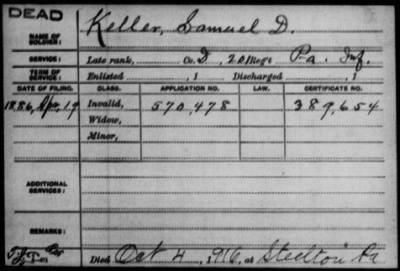 DEAD
NAME OF SOLDIER: Keller, Samuel D.
SERVICE: Late rank, Co. D, 201 Reg't Pa. Inf.
TERM OF SERVICE: Enlisted , 1 Discharged , 1
DATE OF FILING. CLASS. APPLICATION NO. LAW. CERTIFICATE NO.
1886, Apr. 19 Invalid, 570,478 389,654
Widow,
Minor,
ADDITIONAL SERVICES:
REMARKS:
Died Oct 4, 1916, at Steelton Pa